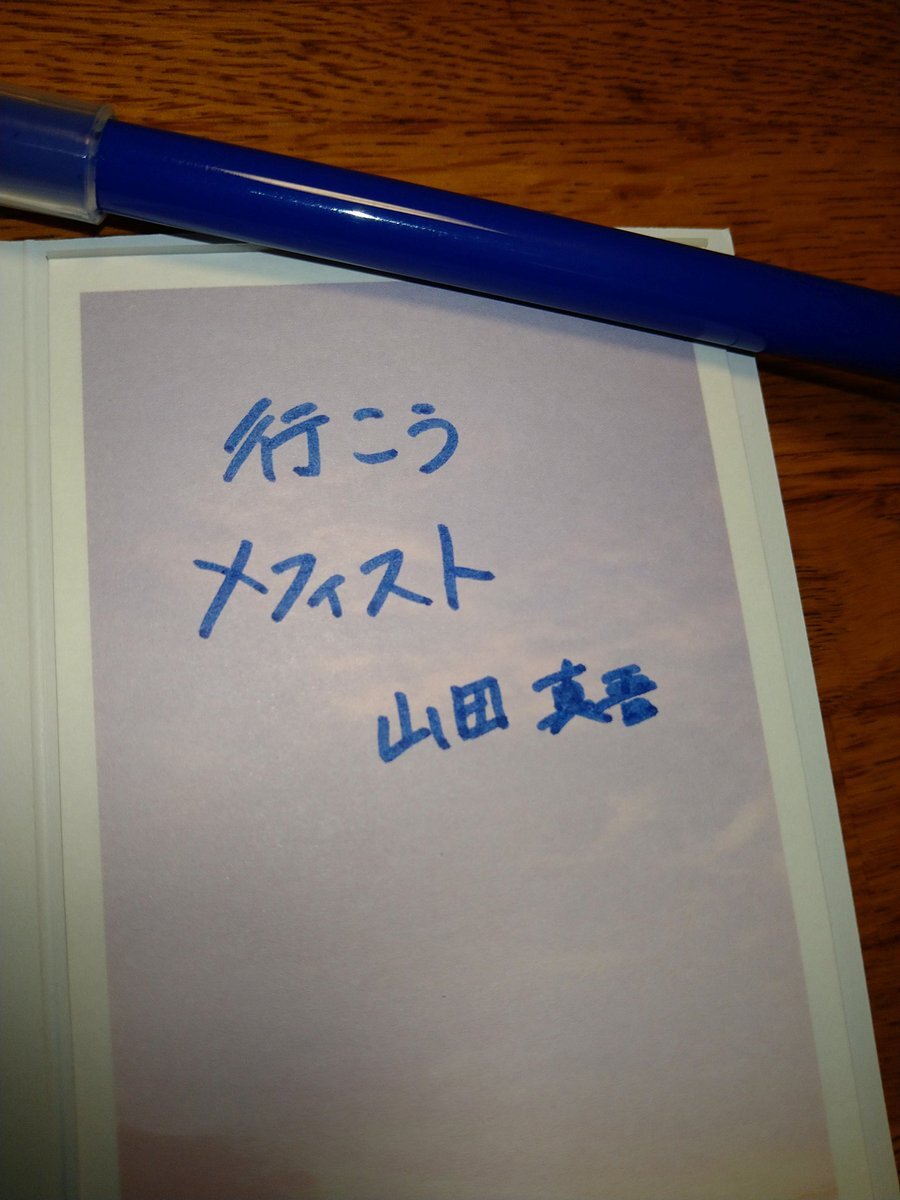 行こう
メフィスト
山田 真吾